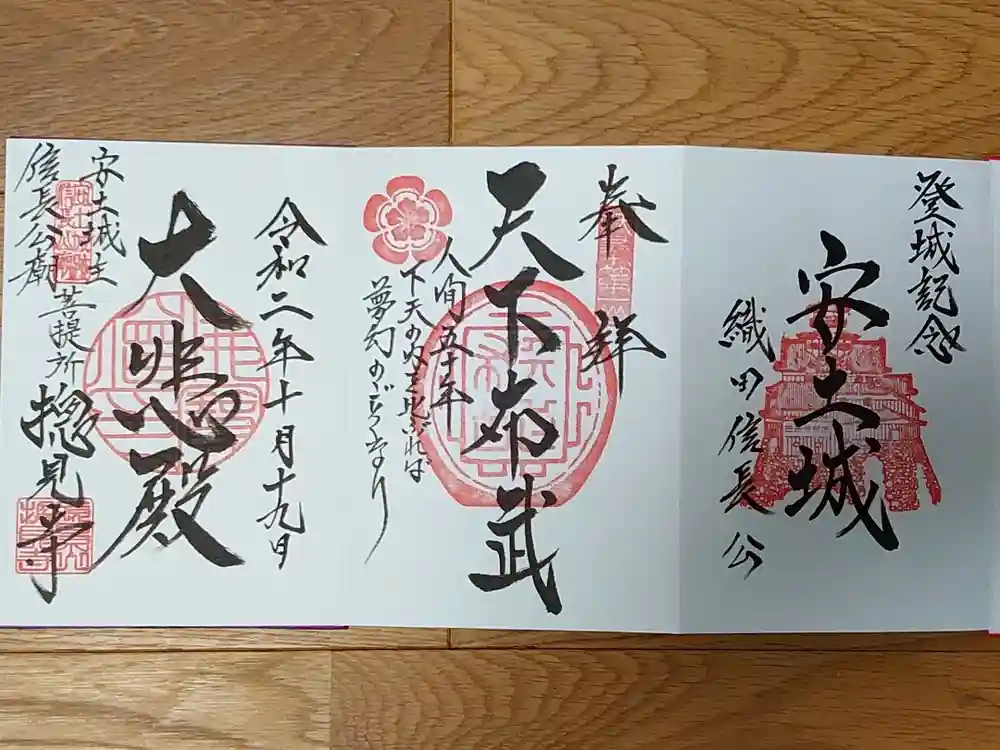 登城記念
安土城
織田信長公
奉拝
天下布武
人間五十年
下天の内を比ぶれば
夢幻のごとくなり
令和二年十月十九日
大悲殿
安土城主
信長公廟
菩提所
摠見寺